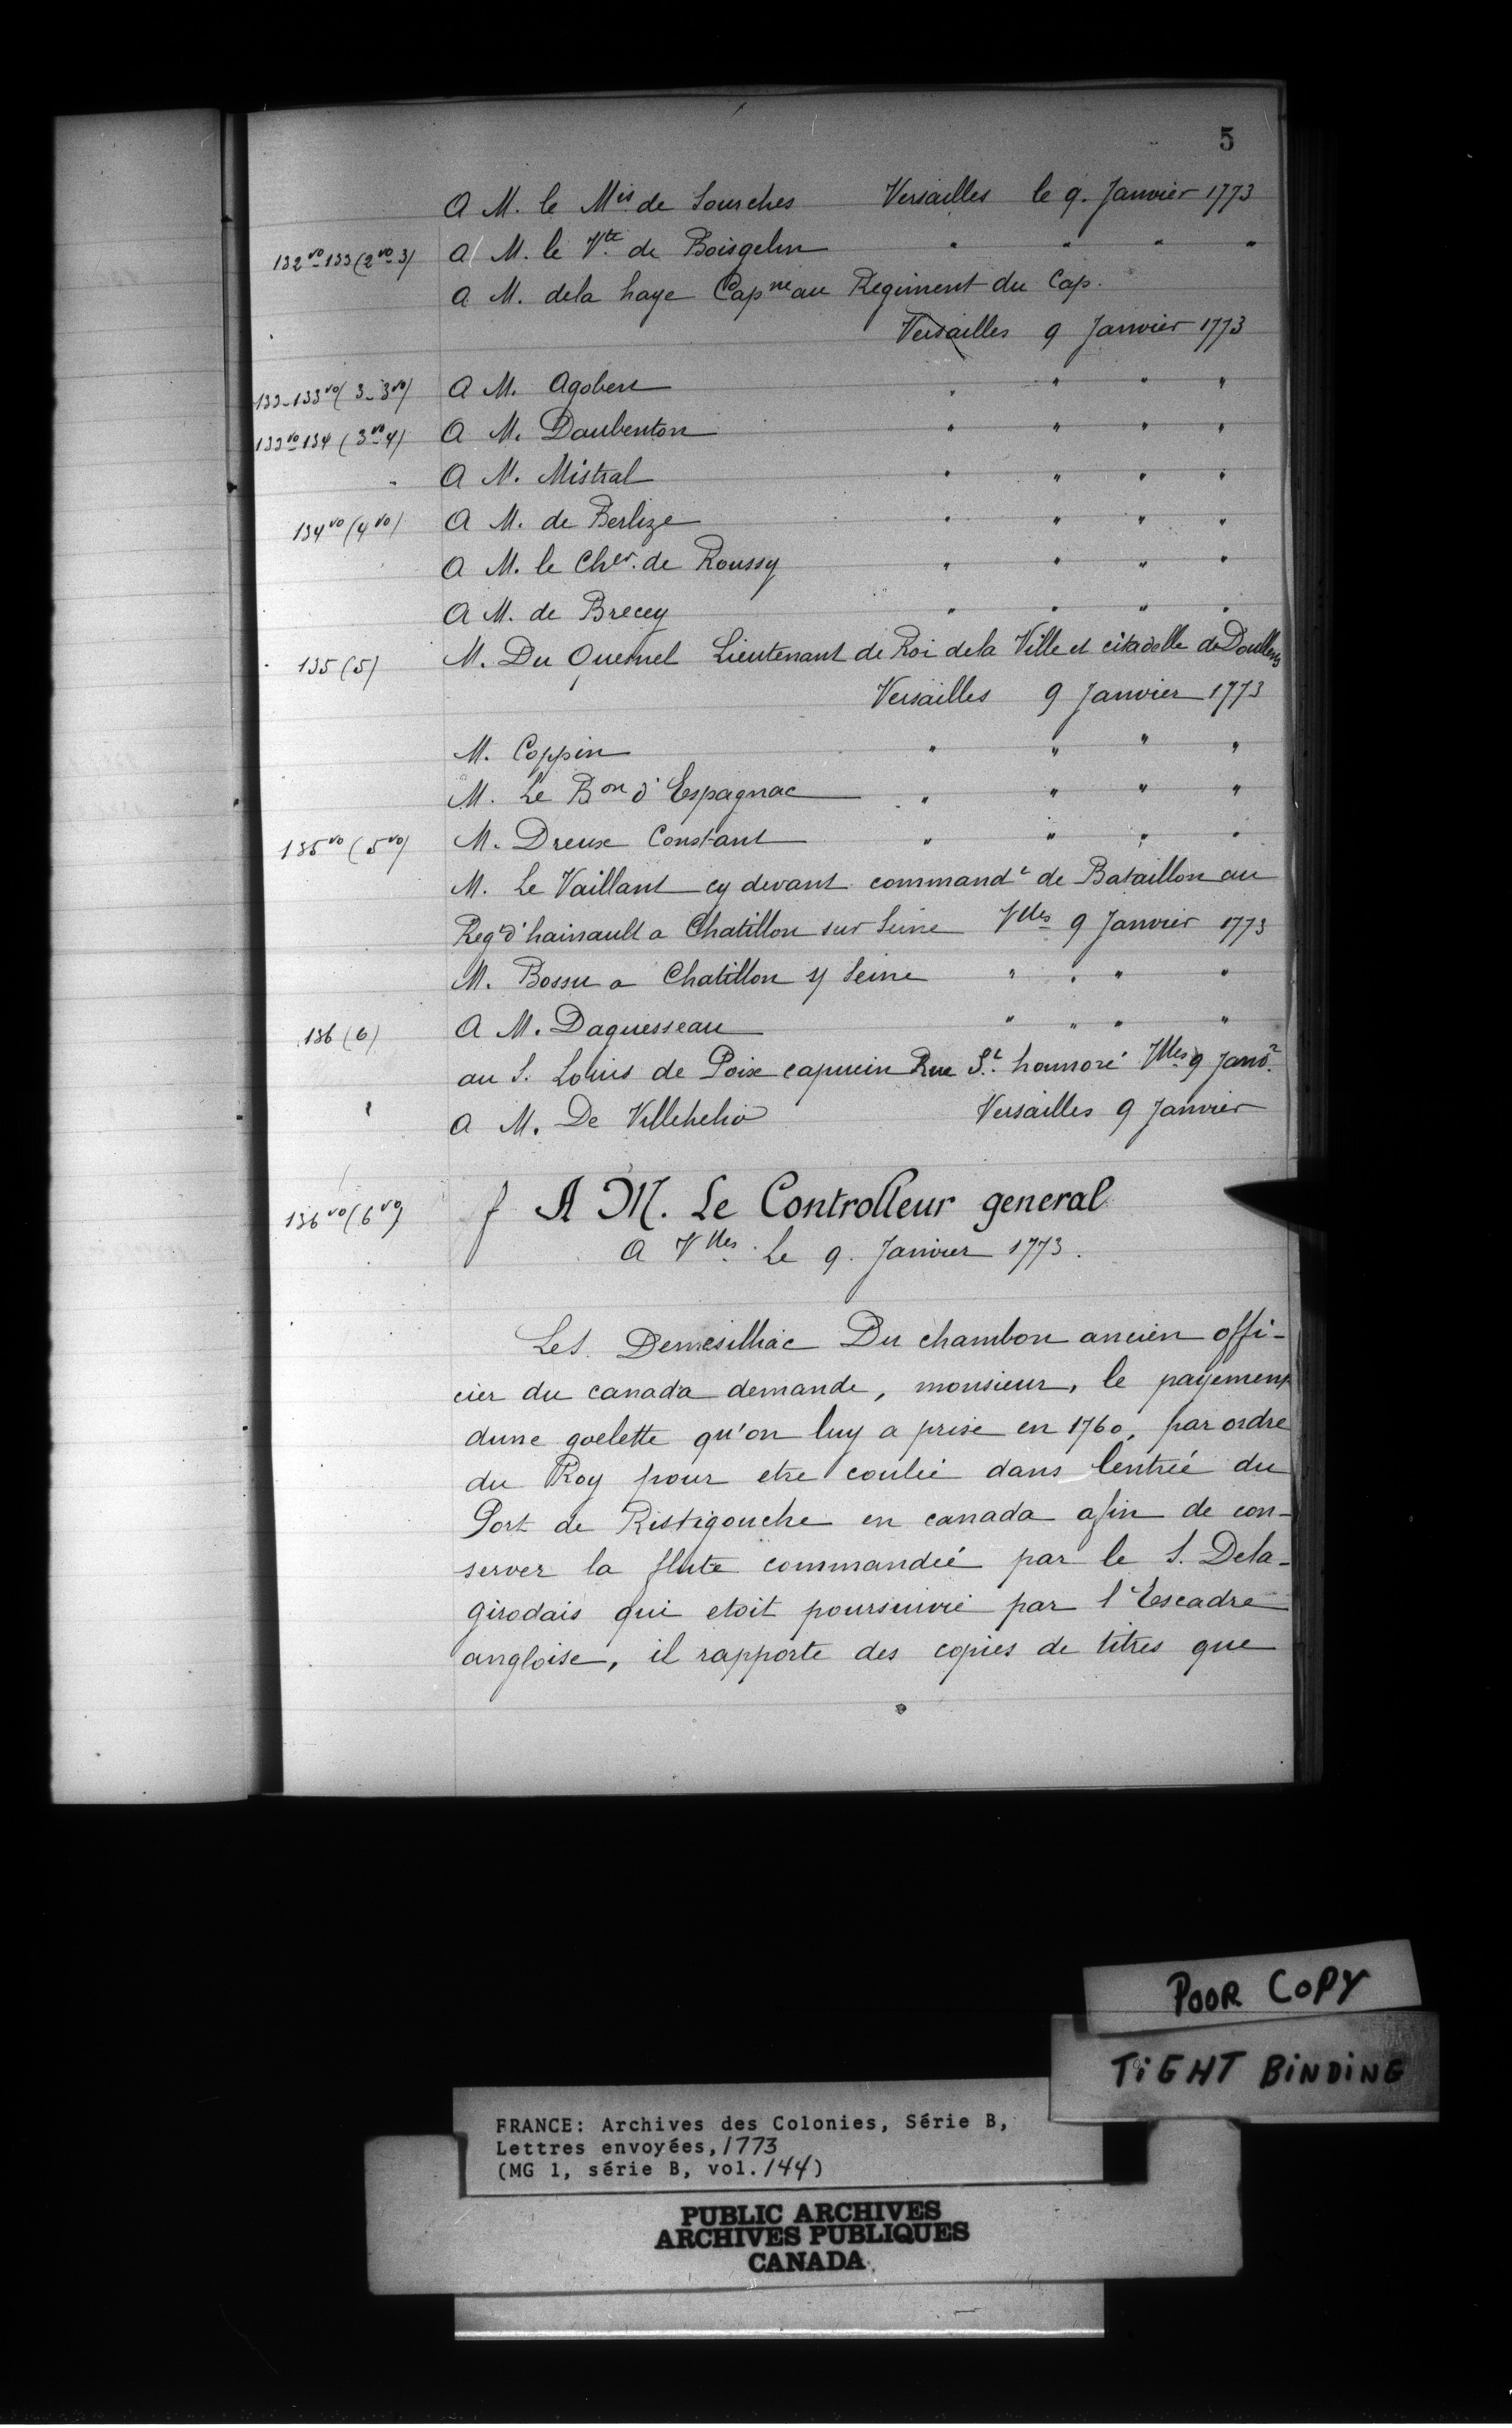 5
A M. le Mis de Sourches Versailles le 9. Janvier 1773
132vo-133 (2vo-3) A M. le Vte de Boisgelin " " " "
A M. dela haye Capne au Regiment du Cap.
Versailles 9 Janvier 1773
133-133vo (3-3vo) A M. Agobert " " " "
133vo-134 (3vo-4) A M. Daubenton " " " "
A M. Mistral " " " "
134vo (4vo) A M. de Berlize " " " "
A M. le Cher. de Roussy " " " "
A M. de Brecey " " " "
135 (5) M. Du Quesnel Lieutenant de Roi dela Ville et citadelle de Doullens
Versailles 9 Janvier 1773
M. Coppin " " " "
M. Le Bon d'Espagnac " " " "
135vo (5vo) M. Dreux Constant " " " "
M. Le Vaillant cy devant commandt de Bataillon au
Regt d'hainault a Chatillon sur Seine Vlles 9 Janvier 1773
M. Bossu a Chatillon s/ Seine " " " "
136 (6) A M. Daguesseau " " " "
au S. Louis de Poix capucin Rue St. honnoré Vlles 9 Janvr.
A M. De Villehelio Versailles 9 Janvier
136vo (6vo) f A M. Le Controlleur general
A Vlles. Le 9. Janvier 1773.
Le S. Demesilliac Du chambon ancien offi-
cier du canada demande, monsieur, le payement
dune goelette qu'on luy a prise en 1760, par ordre
du Roy pour etre coulée dans lentrée du
Port de Ristigouche en canada afin de con-
server la flute commandée par le S. Dela-
girodais qui etoit poursuivie par l'Escadre
angloise, il rapporte des copies de titres que
POOR COPY
TIGHT BINDING
FRANCE: Archives des Colonies, Série B,
Lettres envoyées, 1773
(MG 1, série B, vol. 144)
PUBLIC ARCHIVES
ARCHIVES PUBLIQUES
CANADA